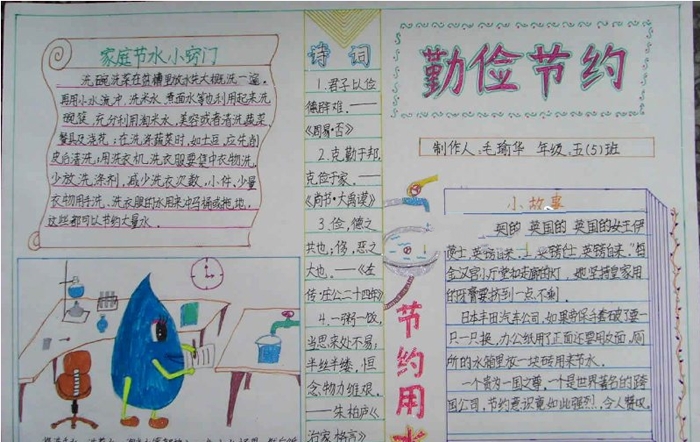 家庭节水小窍门
洗碗洗菜在盆槽里放水共大概洗一遍,
再用小水流冲、洗米水、煮面水等也利用起来洗
碗筷,充分利用淘米水,美容或者清洗蔬菜
餐具及浇花;在洗涤蔬菜时,如土豆,应先削
皮后清洗;用洗衣机洗衣服要集中衣物洗,
少放洗涤剂,减少洗衣次数,小件、少量
衣物用手洗、洗衣服的水用来冲马桶或拖地,
这些都可以节约大量水.
诗词
1.君子以俭
德辟难.——
《周易·否》
2.克勤于邦,
克俭于家.——
《尚书·大禹谟》
3.俭,德之
共也;侈,恶之
大也.——《左
传·庄公二十四年》
4.一粥一饭,
当思来处不易;
半丝半缕,恒
念物力维艰.
——朱柏庐《
治家格言》
勤俭节约
制作人:毛瑜华 年级:五(5)班
节约用水
小故事
英国的女王伊
丽
白金汉宫小厅堂和走廊的灯,她坚持皇家用
的牙膏要挤到一点不剩.
日本丰田汽车公司,如果劳保手套破了要一
只一只换,办公纸用了正面还要用反面,厕
所的水箱里放一块砖用来节水.
一个贵为一国之尊,一个是世界著名的跨
国公司,节约意识竟如此强烈,令人赞叹.